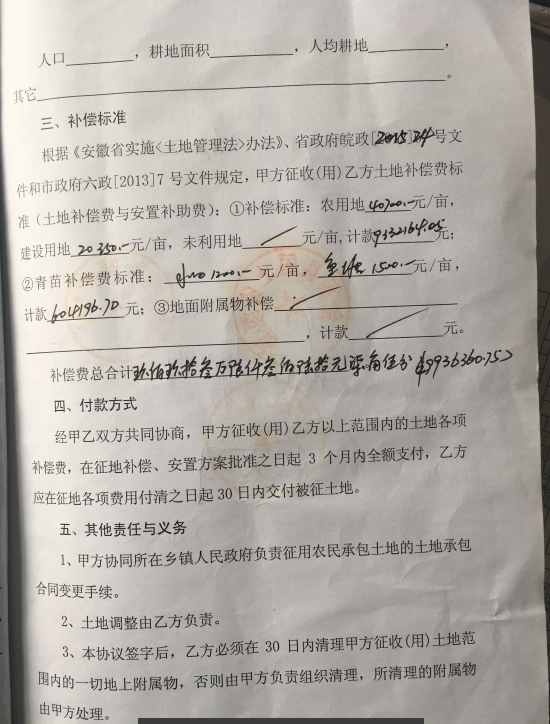 人口________，耕地面积__________，人均耕地________，
其它________________________________________。
三、补偿标准
根据《安徽省实施<土地管理法>办法》、省政府皖政[2015]24号文
件和市政府六政[2013]7 号文件规定，甲方征收(用)乙方土地补偿费标
准（土地补偿费与安置补助费）：①补偿标准：农用地40700.-元/亩，
建设用地20350.-元/亩，未利用地／元/亩,计款9332164.05元；
②青苗补偿费标准：1200.-元/亩，鱼塘1500.-元/亩，
计款604196.70元；③地面附属物补偿／
______________________________，计款／元。
补偿费总合计玖佰玖拾叁万陆仟叁佰陆拾元柒角伍分(¥9936360.75)
四、付款方式
经甲乙双方共同协商，甲方征收(用)乙方以上范围内的土地各项
补偿费，在征地补偿、安置方案批准之日起 3 个月内全额支付，乙方
应在征地各项费用付清之日起30日内交付被征土地。
五、其他责任与义务
1、甲方协同所在乡镇人民政府负责征用农民承包土地的土地承包
合同变更手续。
2、土地调整由乙方负责。
3、本协议签字后，乙方必须在 30 日内清理甲方征收(用)土地范
围内的一切地上附属物，否则由甲方负责组织清理，所清理的附属物
由甲方处理。